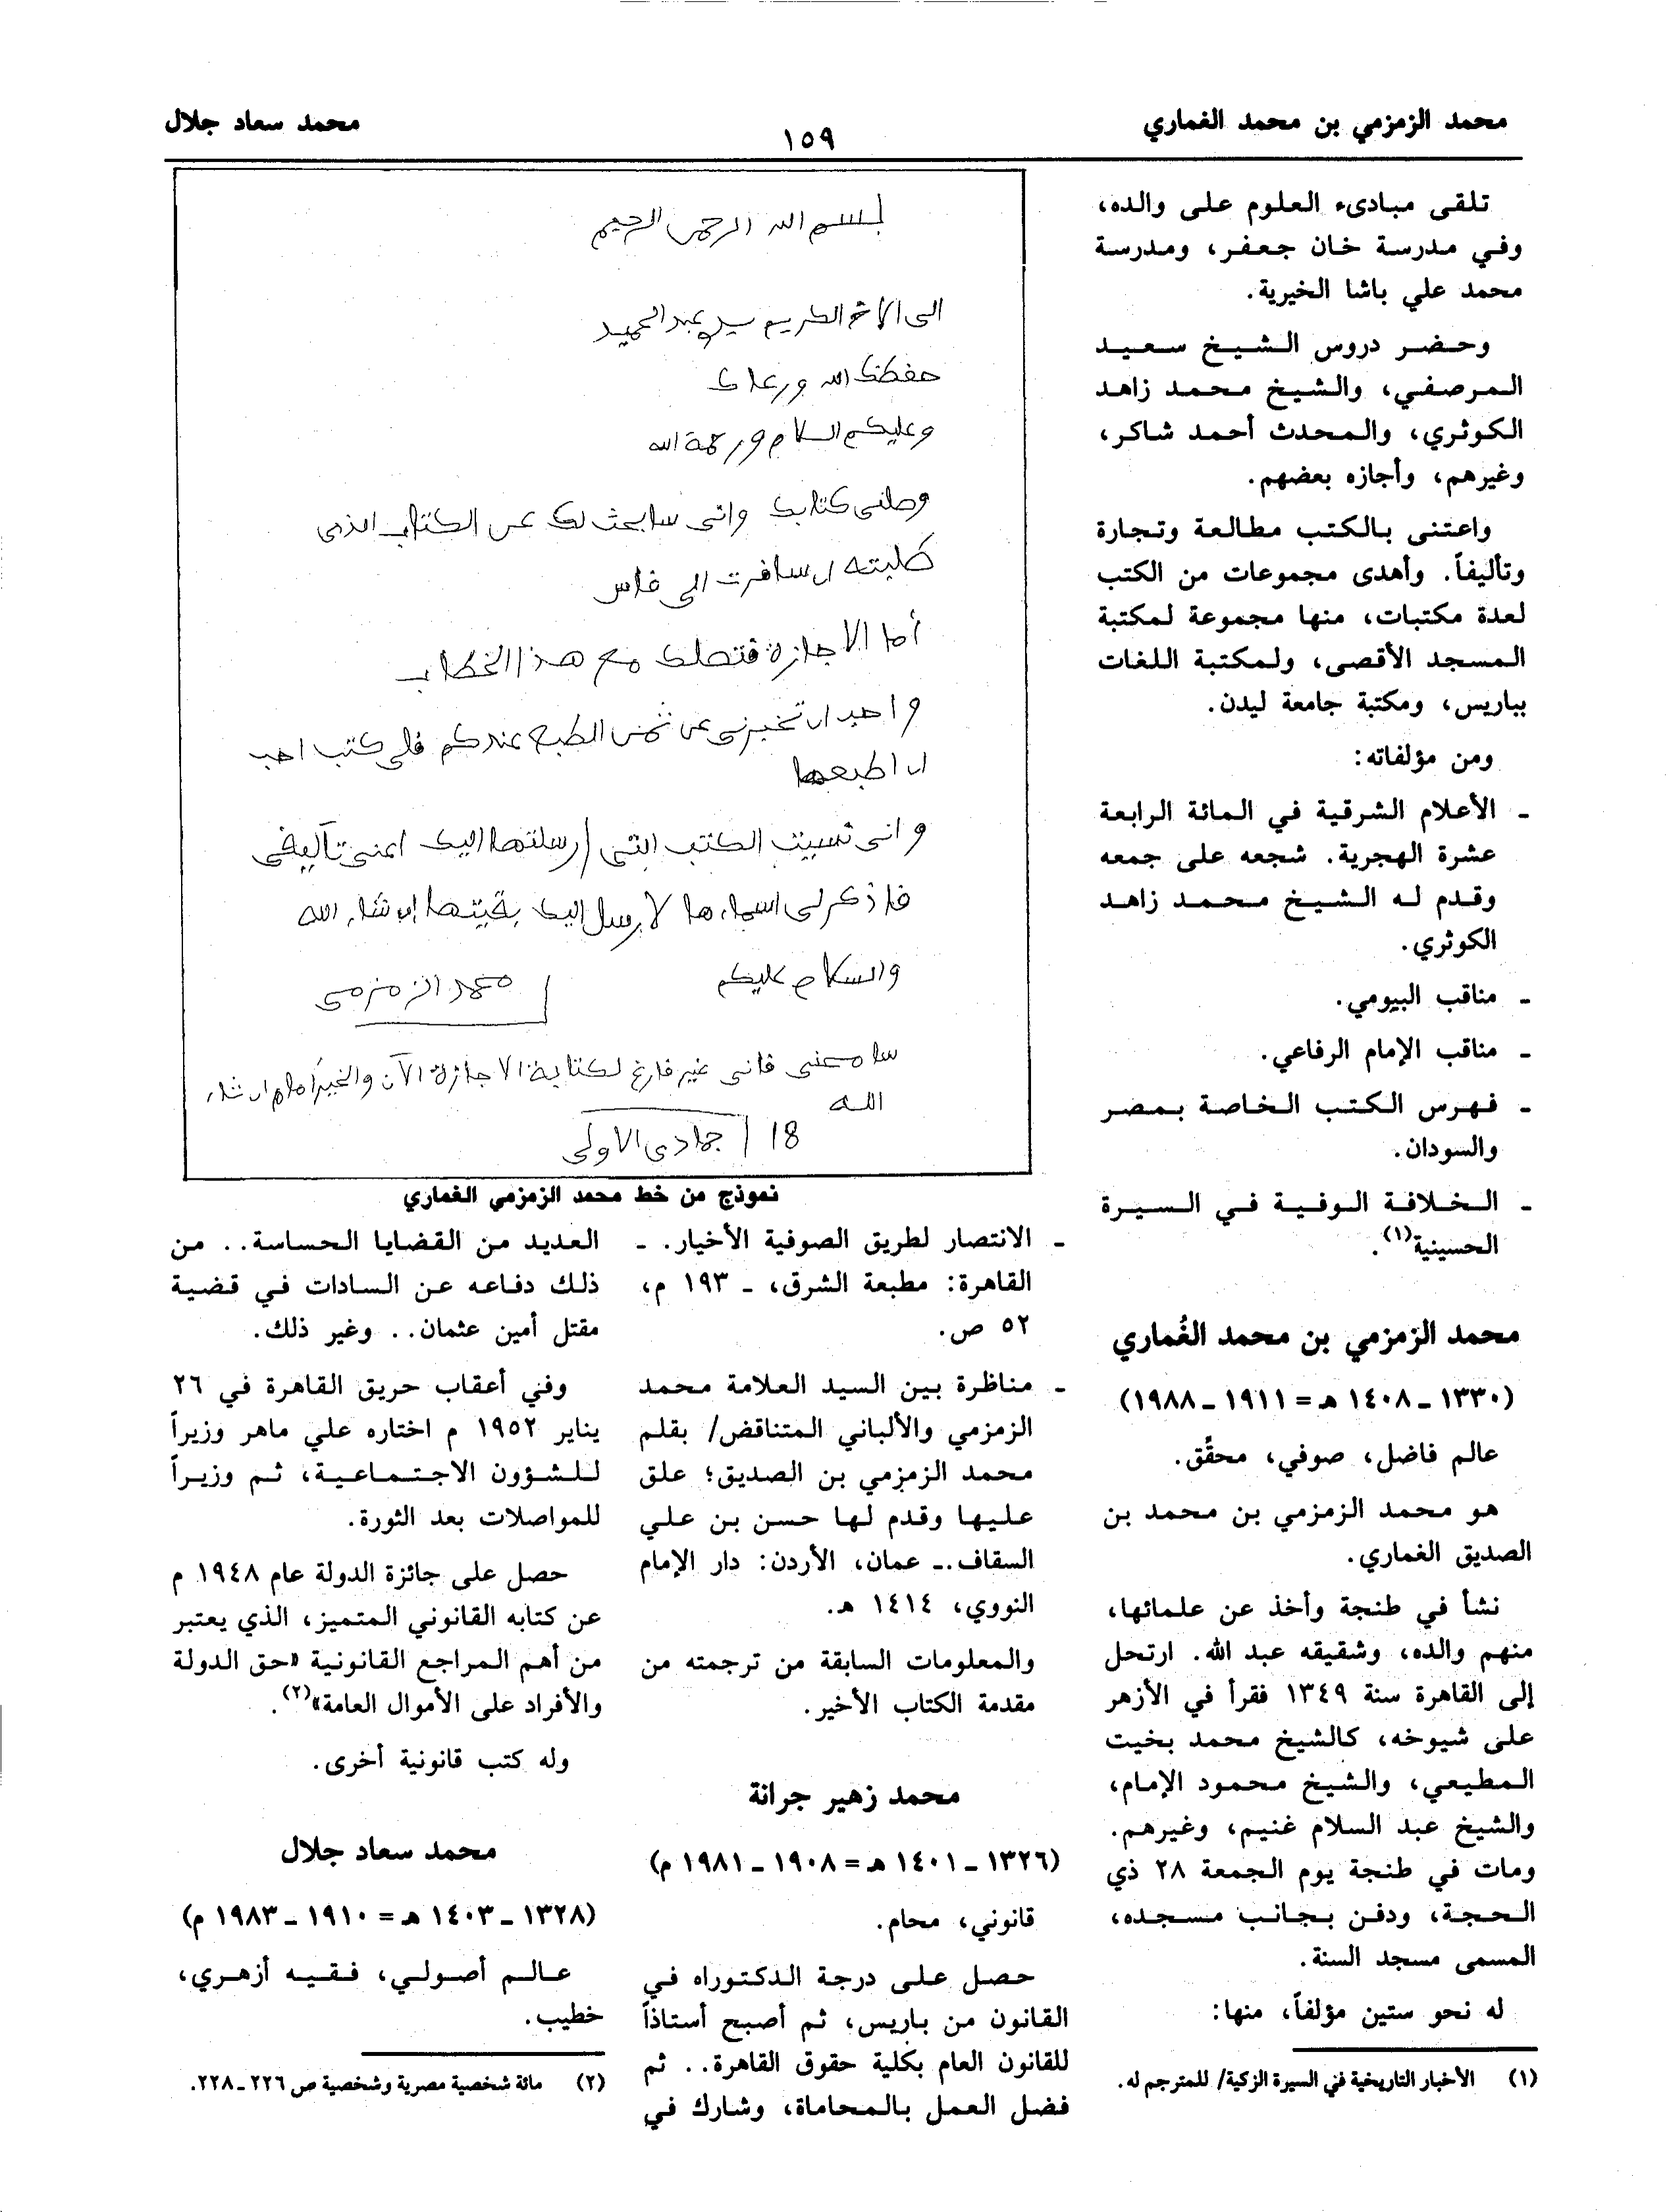 محمد الزمزمي بن محمد الغماري
١٥٩
محمد سعاد جلال
تلقى مبادىء العلوم على والده،
وفي مدرسة خان جعفر، ومدرسة
محمد علي باشا الخيرية.
وحضر دروس الشيخ سعيد
المرصفي، والشيخ محمد زاهد
الكوثري، والمحدث أحمد شاكر،
وغيرهم، وأجازه بعضهم.
واعتنى بالكتب مطالعة وتجارة
وتأليفاً. وأهدى مجموعات من الكتب
لعدة مكتبات، منها مجموعة لمكتبة
المسجد الأقصى، ولمكتبة اللغات
بباريس، ومكتبة جامعة ليدن.
ومن مؤلفاته:
- الأعلام الشرقية في المائة الرابعة
عشرة الهجرية. شجعه على جمعه
وقدم له الشيخ محمد زاهد
الكوثري.
- مناقب البيومي.
- مناقب الإمام الرفاعي.
- فهرس الكتب الخاصة بمصر
والسودان.
- الخلافة الوفية في السيرة
الحسينية(١).
محمد الزمزمي بن محمد الغُماري
(١٣٣٠ - ١٤٠٨ هـ = ١٩١١ - ١٩٨٨)
عالم فاضل، صوفي، محقِّق.
هو محمد الزمزمي بن محمد بن
الصديق الغماري.
نشأ في طنجة وأخذ عن علمائها،
منهم والده، وشقيقه عبد الله. ارتحل
إلى القاهرة سنة ١٣٤٩ فقرأ في الأزهر
على شيوخه، كالشيخ محمد بخيت
المطيعي، والشيخ محمود الإمام،
والشيخ عبد السلام غنيم، وغيرهم.
ومات في طنجة يوم الجمعة ٢٨ ذي
الحجة، ودفن بجانب مسجده،
المسمى مسجد السنة.
له نحو ستين مؤلفاً، منها:
(١) الأخبار التاريخية في السيرة الزكية/ للمترجم له.
بسم الله الرحمن الرحيم
الى الاخ الكريم سيدي عبد الحميد
حفظك الله ورعاك
وعليكم السلام ورحمة الله
وصلني كتابك وانى سابحث لك عن الكتاب الذى
طلبته ان سافرت الى فاس
أما الاجازة فتصلك مع هذا الخطاب
واحب ان تخبرنى عن ثمن الطبع عندكم فلى كتب احب
ان اطبعها
وانى نسيت الكتب التى ارسلتها اليك اعنى تآليفى
فاذكر لى اسماءها لارسل اليك بقيتها ان شاء الله
والسلام عليكم
محمد الزمزمى
سامحنى فانى غير فارغ لكتابة الاجازة الآن والخير أمام ان شاء
الله
18 جمادى الاولى
نموذج من خط محمد الزمزمي الغماري
- الانتصار لطريق الصوفية الأخيار. -
القاهرة: مطبعة الشرق، - ١٩٣ م،
٥٢ ص.
- مناظرة بين السيد العلامة محمد
الزمزمي والألباني المتناقض/ بقلم
محمد الزمزمي بن الصديق؛ علق
عليها وقدم لها حسن بن علي
السقاف.- عمان، الأردن: دار الإمام
النووي، ١٤١٤ هـ.
والمعلومات السابقة من ترجمته من
مقدمة الكتاب الأخير.
محمد زهير جرانة
(١٣٢٦ - ١٤٠١ هـ = ١٩٠٨ - ١٩٨١ م)
قانوني، محام.
حصل على درجة الدكتوراه في
القانون من باريس، ثم أصبح أستاذاً
للقانون العام بكلية حقوق القاهرة.. ثم
فضل العمل بالمحاماة، وشارك في
العديد من القضايا الحساسة.. من
ذلك دفاعه عن السادات في قضية
مقتل أمين عثمان.. وغير ذلك.
وفي أعقاب حريق القاهرة في ٢٦
يناير ١٩٥٢ م اختاره علي ماهر وزيراً
للشؤون الاجتماعية، ثم وزيراً
للمواصلات بعد الثورة.
حصل على جائزة الدولة عام ١٩٤٨ م
عن كتابه القانوني المتميز، الذي يعتبر
من أهم المراجع القانونية «حق الدولة
والأفراد على الأموال العامة»(٢).
وله كتب قانونية أخرى.
محمد سعاد جلال
(١٣٢٨ - ١٤٠٣ هـ = ١٩١٠ - ١٩٨٣ م)
عالم أصولي، فقيه أزهري،
خطيب.
(٢) مائة شخصية مصرية وشخصية ص ٢٢٦ - ٢٢٨.